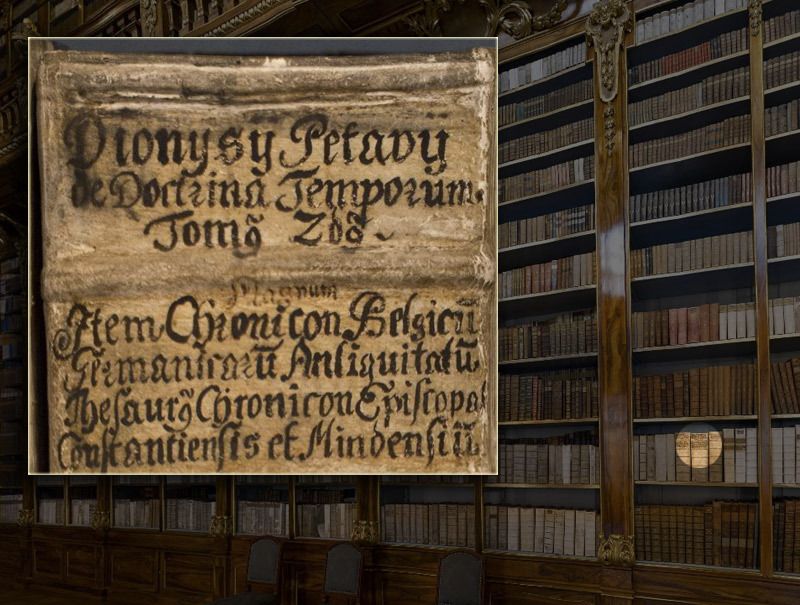 Dionysÿ Petavÿ
de Doctrina Temporum.
Tomꝰ 2dꝰ
Magnum
Item Chronicon Belgicū
Germanicarū Antiquitatū
Thesaurꝰ Chronicon Episcopa
Constantiensis et Mindensiū